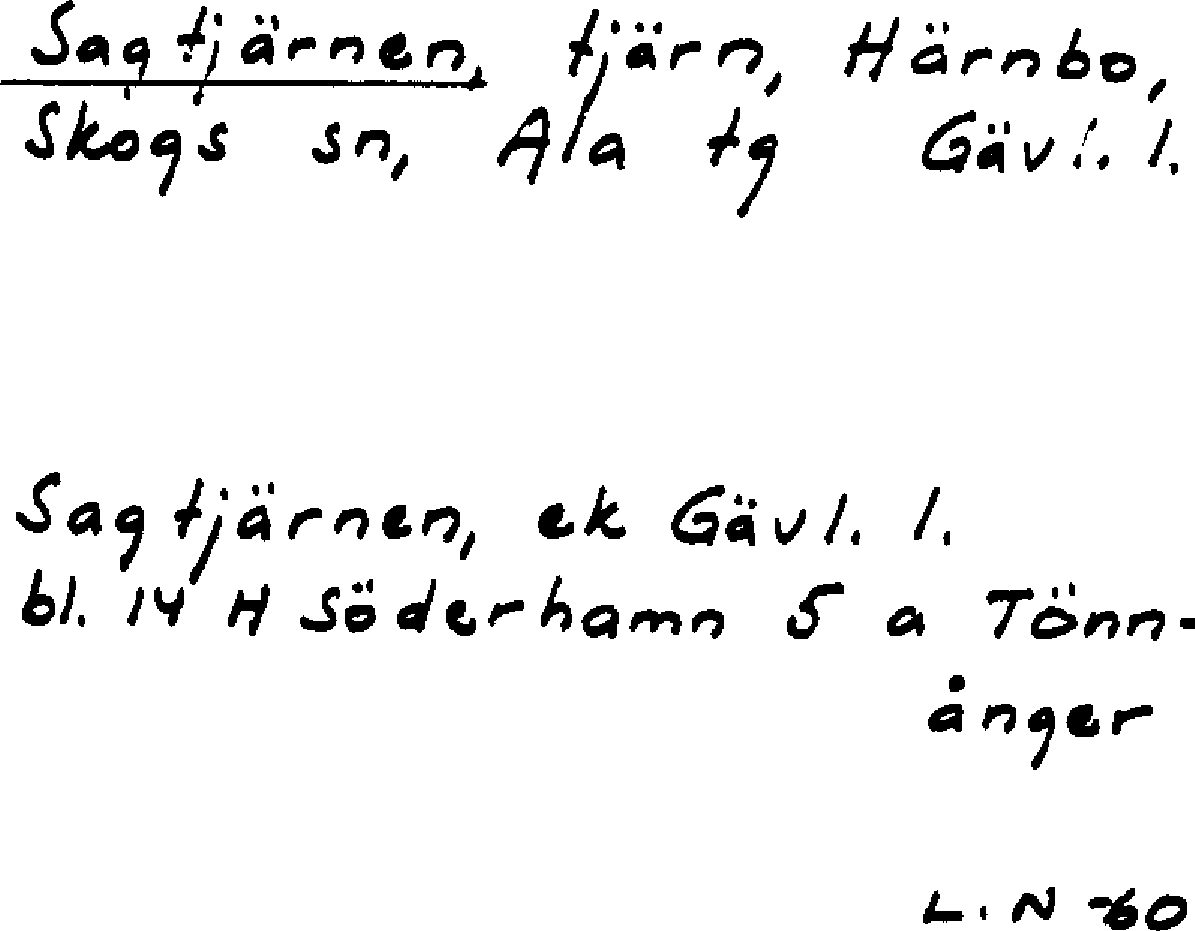 Sagtjärnen, tjärn, Härnbo,
Skogs sn, Ala tg Gävl. l.
Sagtjärnen, ek Gävl. l.
bl. 14 H Söderhamn 5 a Tönn-
ånger
L. N -60